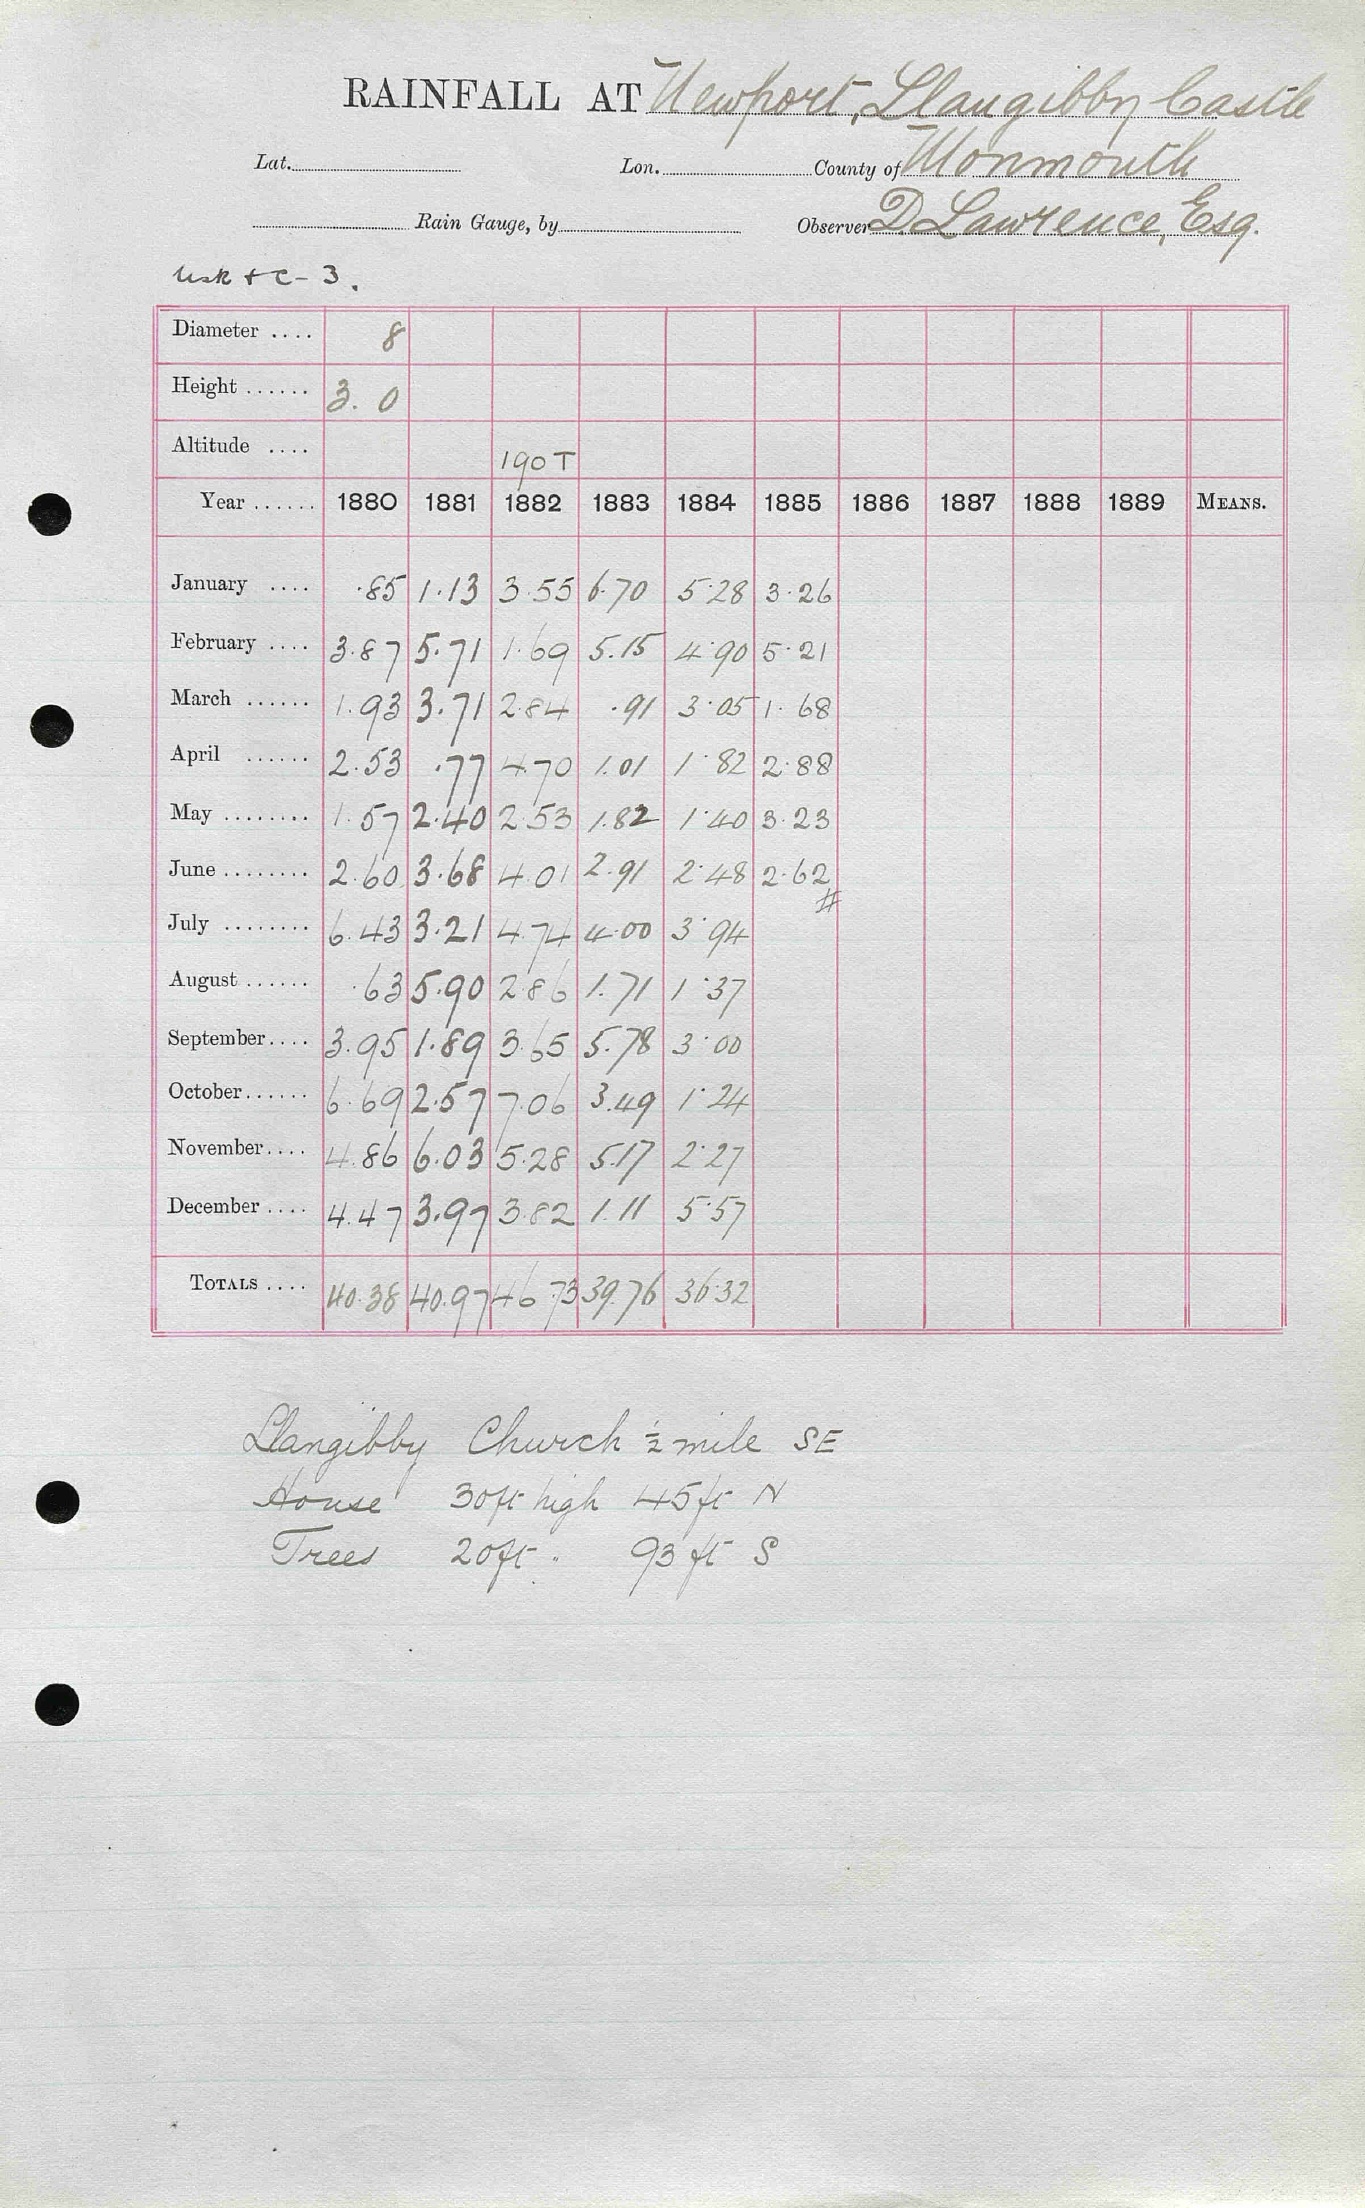 RAINFALL AT Newport, Llangibby Castle
Lat. Lon. County of Monmouth
Rain Gauge, by Observer D Lawrence, Esq.
Usk + C - 3.
Diameter .... 8
Height ...... 3. 0
Altitude .... 190 T
Year ...... 1880 1881 1882 1883 1884 1885 1886 1887 1888 1889 MEANS.
January .... .85 1.13 3.55 6.70 5.28 3.26
February .... 3.87 5.71 1.69 5.15 4.90 5.21
March ...... 1.93 3.71 2.84 .91 3.05 1.68
April ...... 2.53 .77 4.70 1.01 1.82 2.88
May ........ 1.57 2.40 2.53 1.82 1.40 3.23
June ........ 2.60 3.68 4.01 2.91 2.48 2.62 #
July ........ 6.43 3.21 4.74 4.00 3.94
August ...... .63 5.90 2.86 1.71 1.37
September.... 3.95 1.89 3.65 5.78 3.00
October...... 6.69 2.57 7.06 3.49 1.24
November.... 4.86 6.03 5.28 5.17 2.27
December .... 4.47 3.97 3.82 1.11 5.57
TOTALS .... 40.38 40.97 46.73 39.76 36.32
Llangibby Church ½ mile SE
House 30ft high 45ft N
Trees 20ft " 93 ft S